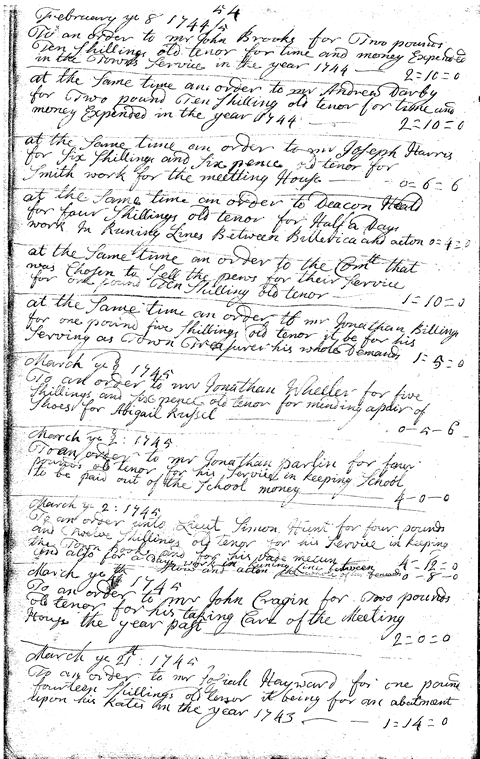 54
February ye 8 1744/5
To an order to mr John Brooks for Two pounds
Ten Shillings old tenor for time and money Expended
in the Towns Service in the year 1744 — 2=10=0
at the Same time an order to mr Andrew Darby
for Two pound Ten Shilling old tenor for time and
money Expended in the year 1744 — 2=10=0
at the Same time an order to mr Joseph Harris
for Six Shillings and Six pence old tenor for
Smith work for the meetting House 0=6=6
at the Same time an order to Deacon Heald
for four Shillings old tenor for Half a Days
work In Runing Lines Between Billerica and acton 0=4=0
at the Same time an order to the Comtt that
was Chosen to Sell the pews for their Service
for one pound Ten Shilling old tenor — 1=10=0
at the Same time an order to mr Jonathan Billings
for one pound five Shillings old tenor it be for his
Serving as Town Treasurer his whole Demands 1=5=0
March ye 1745
To an order to mr Jonathan Wheeler for five
Shillings and six pence old tenor for mending a pair of
Shoes for Abigail Russel 0-5-6
March ye 1745
To an order to mr Jonathan parlin for four
pounds old tenor for his Service in keeping School
to be paid out of the School money — 4-0-0
March ye 2: 1745
To an order unto Lieut Simon Hunt for four pounds
and Twelve Shillings old tenor for his Service in keeping
the and for his vade mecum 4-12=0
and also for 2 days work in Runing Lines between
and acton 0-8-0
March ye 1745
To an order to mr John Cragin for Two pounds
old tenor for his taking Care of the Meeting
House the year past 2=0=0
March ye 21: 1745
To an order to mr Josiah Hayward for one pound
fourteen Shillings old tenor it being for an abatment
upon his Rates in the year 1743 — 1=14=0